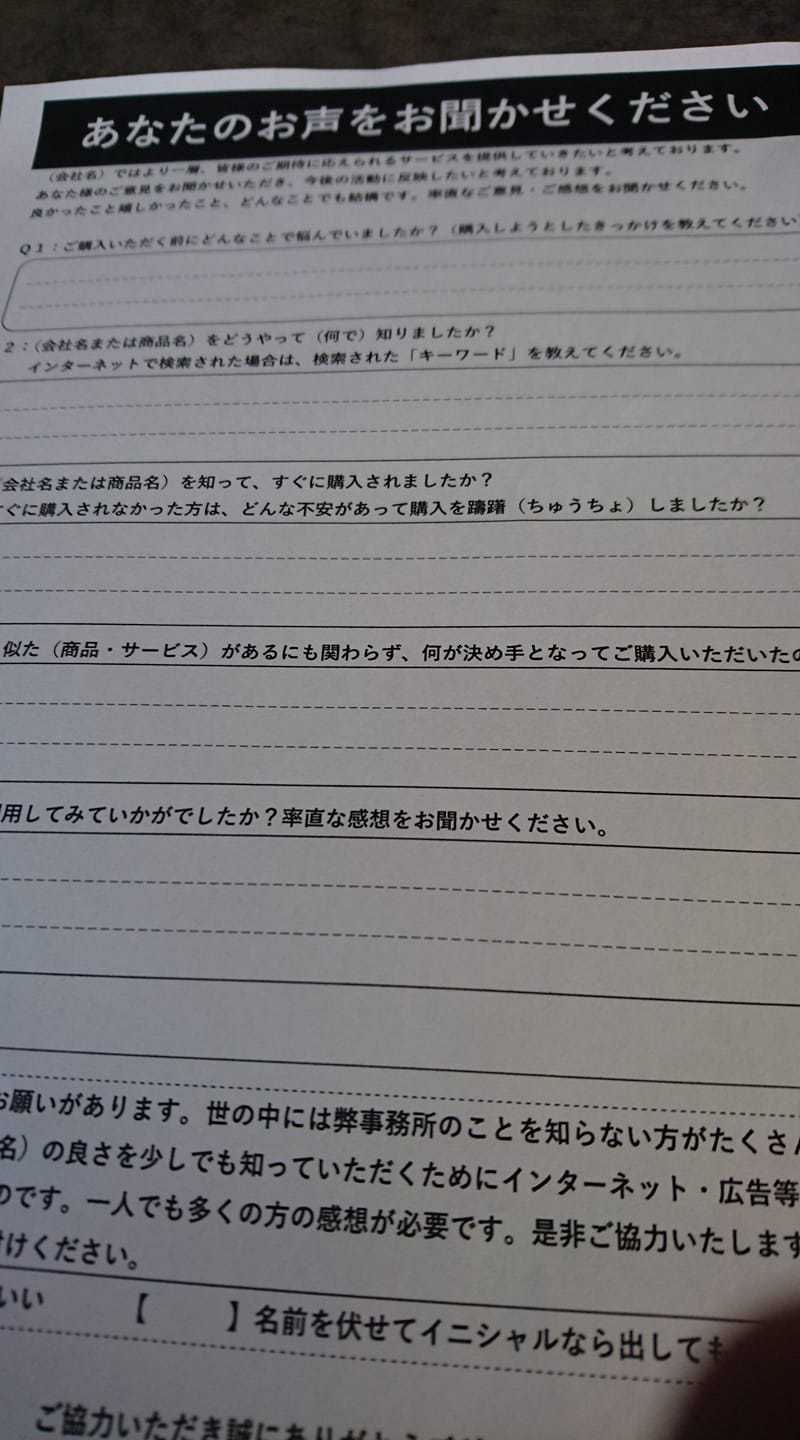 あなたのお声をお聞かせください
(会社名)ではより一層、皆様のご期待に応えられるサービスを提供していきたいと考えております。
あなた様のご意見をお聞かせいただき、今後の活動に反映したいと考えております。
良かったこと嬉しかったこと、どんなことでも結構です。率直なご意見・ご感想をお聞かせください。
Q1:ご購入いただく前にどんなことで悩んでいましたか?(購入しようとしたきっかけを教えてください
2:(会社名または商品名)をどうやって(何で)知りましたか?
インターネットで検索された場合は、検索された「キーワード」を教えてください。
会社名または商品名)を知って、すぐに購入されましたか?
すぐに購入されなかった方は、どんな不安があって購入を躊躇(ちゅうちょ)しましたか?
似た(商品・サービス)があるにも関わらず、何が決め手となってご購入いただいたの
用してみていかがでしたか?率直な感想をお聞かせください。
お願いがあります。世の中には弊事務所のことを知らない方がたくさん
名)の良さを少しでも知っていただくためにインターネット・広告等
のです。一人でも多くの方の感想が必要です。是非ご協力いたします
けください。
いい 【 】名前を伏せてイニシャルなら出しても
ご協力いただき誠にありがとうござ